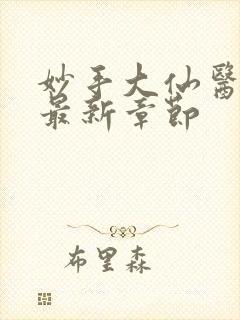 妙手大仙醫
最新章節
布里森